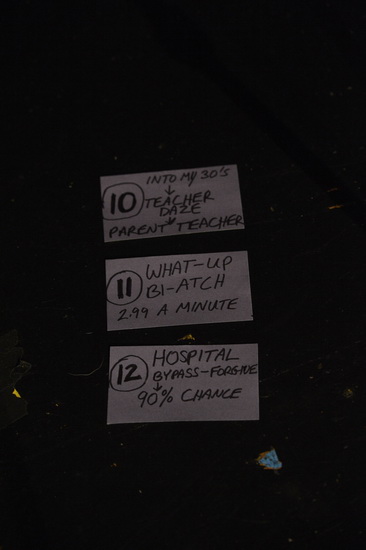 10 INTO MY 30'S
↓
TEACHER
DAZE
↓
PARENT TEACHER
11 WHAT-UP
BI-ATCH
2.99 A MINUTE
12 HOSPITAL
BYPASS-FORGIVE
↓
90% CHANCE